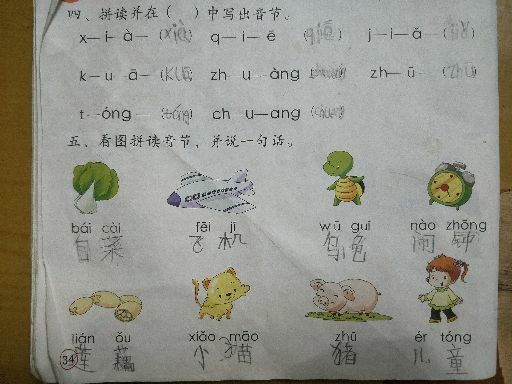 四、拼读并在( )中写出音节。
x—i—à—(xià) q—i—ē(qiē) j—i—ǎ—(jiǎ)
k—u—ā—(kuā) zh—u—àng zh—ū—(zhū)
t—óng—(tóng) ch—u—ang
五、看图拼读音节,并说一句话。
bái cài fēi jī wū guī nào zhōng
白菜 飞机 乌龟 闹钟
lián ǒu xiǎo māo zhū ér tóng
莲藕 小猫 猪 儿童
34